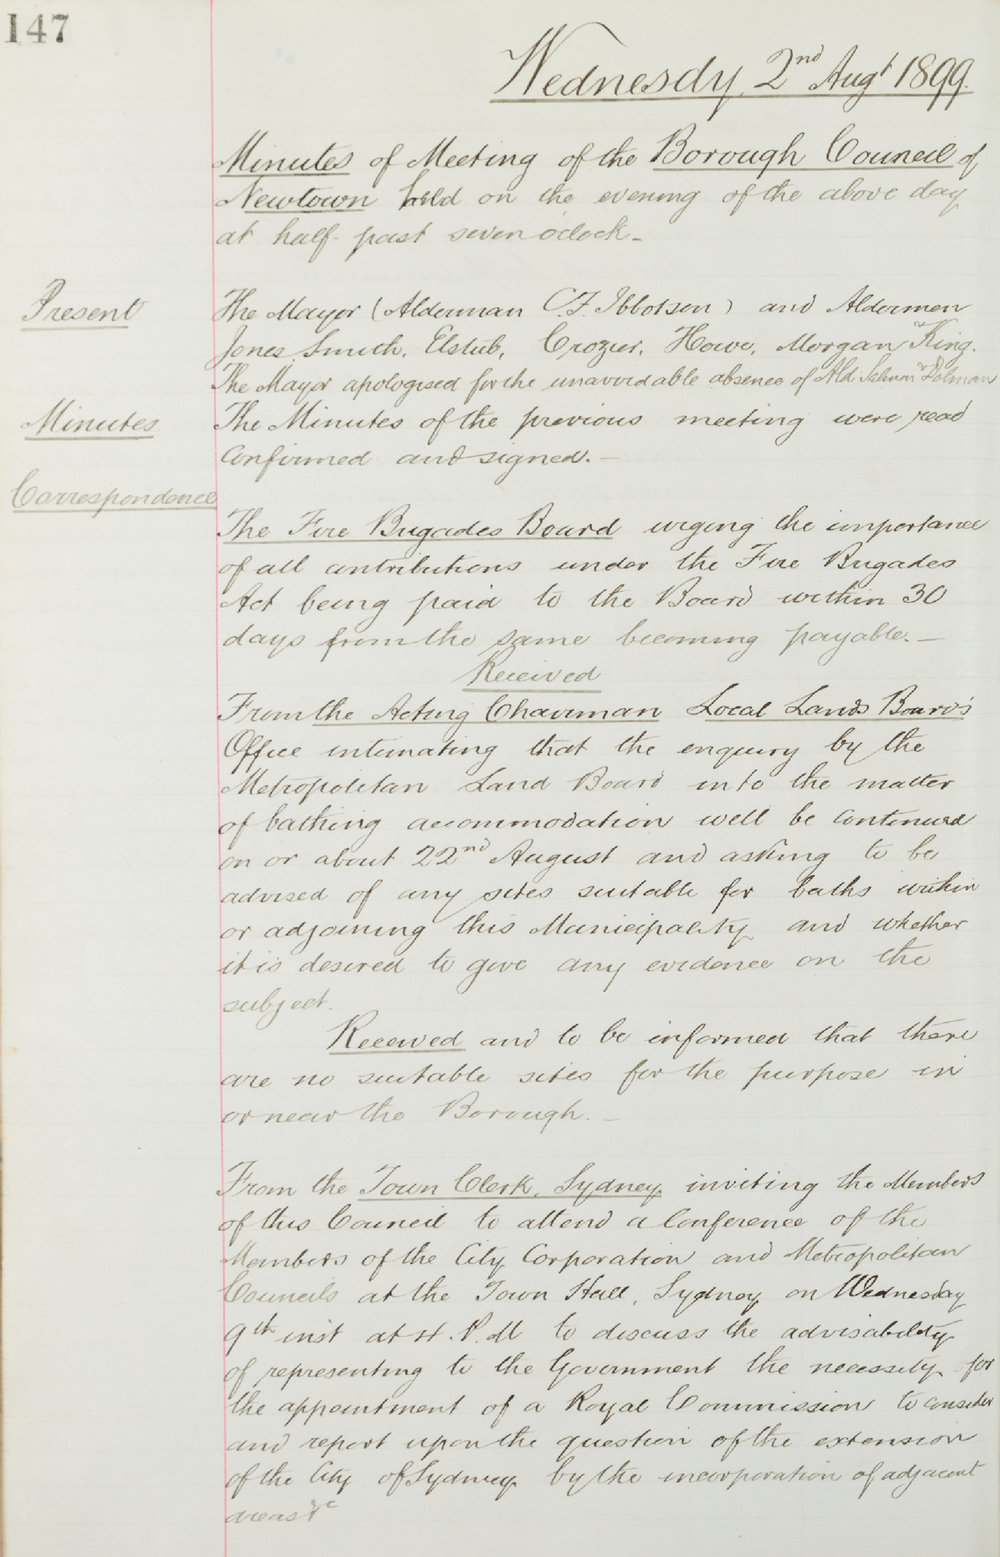 147
Wednesdy 2nd Augt 1899.
Minutes of Meeting of the Borough Council of
Newtown held on the evening of the above day
at half past seven oclock -
Present
The Mayor (Alderman C.F. Ibbotson) and Aldermen
Jones, Smith, Elstub, Crozier, Howe, Morgan & King.
The Mayor apologised for the unavoidable absence of Ald. Salmon & Dolman
Minutes
The Minutes of the previous meeting were read
Confirmed and signed. -
Correspondence
The Fire Brigades Board urging the importance
of all contributions under the Fire Brigades
Act being paid to the Board within 30
days from the same becoming payable. -
Received
From the Acting Chairman Local Lands Board's
Office intimating that the enquiry by the
Metropolitan Land Board into the matter
of bathing accommodation will be continued
on or about 22nd August and asking to be
advised of any sites suitable for baths within
or adjoining this Municipality and whether
it is desired to give any evidence on the
subject.
Received and to be informed that there
are no suitable sites for the purpose in
or near the Borough. -
From the Town Clerk, Sydney, inviting the Members
of this Council to attend a Conference of the
Members of the City Corporation and Metropolitan
Councils at the Town Hall, Sydney on Wednesday
9th inst at 4. P.M to discuss the advisability
of representing to the Government the necessity for
the appointment of a Royal Commission to consider
and report upon the question of the extension
of the City of Sydney by the incorporation of adjacent
areas &c